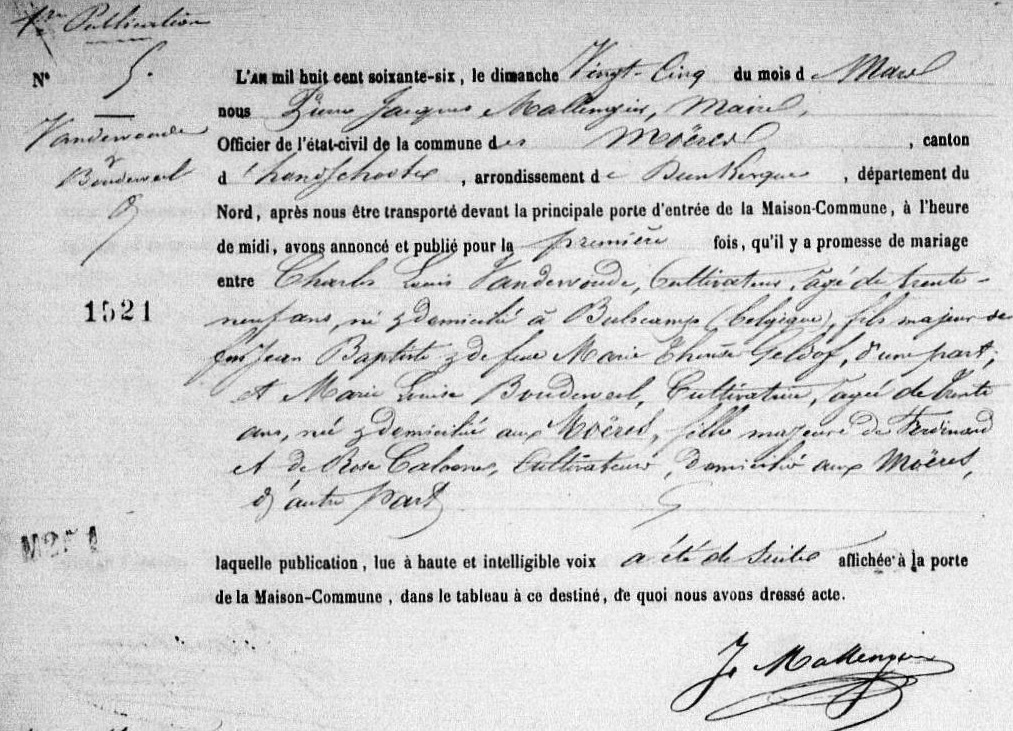 1re Publication
N° 5.
Vandewoude
&
Boudeweel
1521
L'AN mil huit cent soixante-six, le dimanche Vingt-Cinq du mois de Mars
nous Pierre Jacques Mallengier, Maire,
Officier de l'état-civil de la commune des Moëres, canton
d'hondschoote, arrondissement de Dunkerque, département du
Nord, après nous être transporté devant la principale porte d'entrée de la Maison-Commune, à l'heure
de midi, avons annoncé et publié pour la première fois, qu'il y a promesse de mariage
entre Charles Louis Vandewoude, Cultivateur, âgé de trente-
neuf ans, né & domicilié à Bulscamp (belgique), fils majeur de
feu Jean Baptiste & de feue Marie Thérèse Geldof, d'une part;
et Marie Louise Boudeweel, Cultivatrice, agée de trente
ans, née & domiciliée aux Moëres, fille majeure de Ferdinand
et de Rose Cabaene, Cultivateurs, domiciliés aux Moëres,
d'autre part
laquelle publication, lue à haute et intelligible voix a été de suite affichée à la porte
de la Maison-Commune, dans le tableau à ce destiné, de quoi nous avons dressé acte.
Je Mallengier